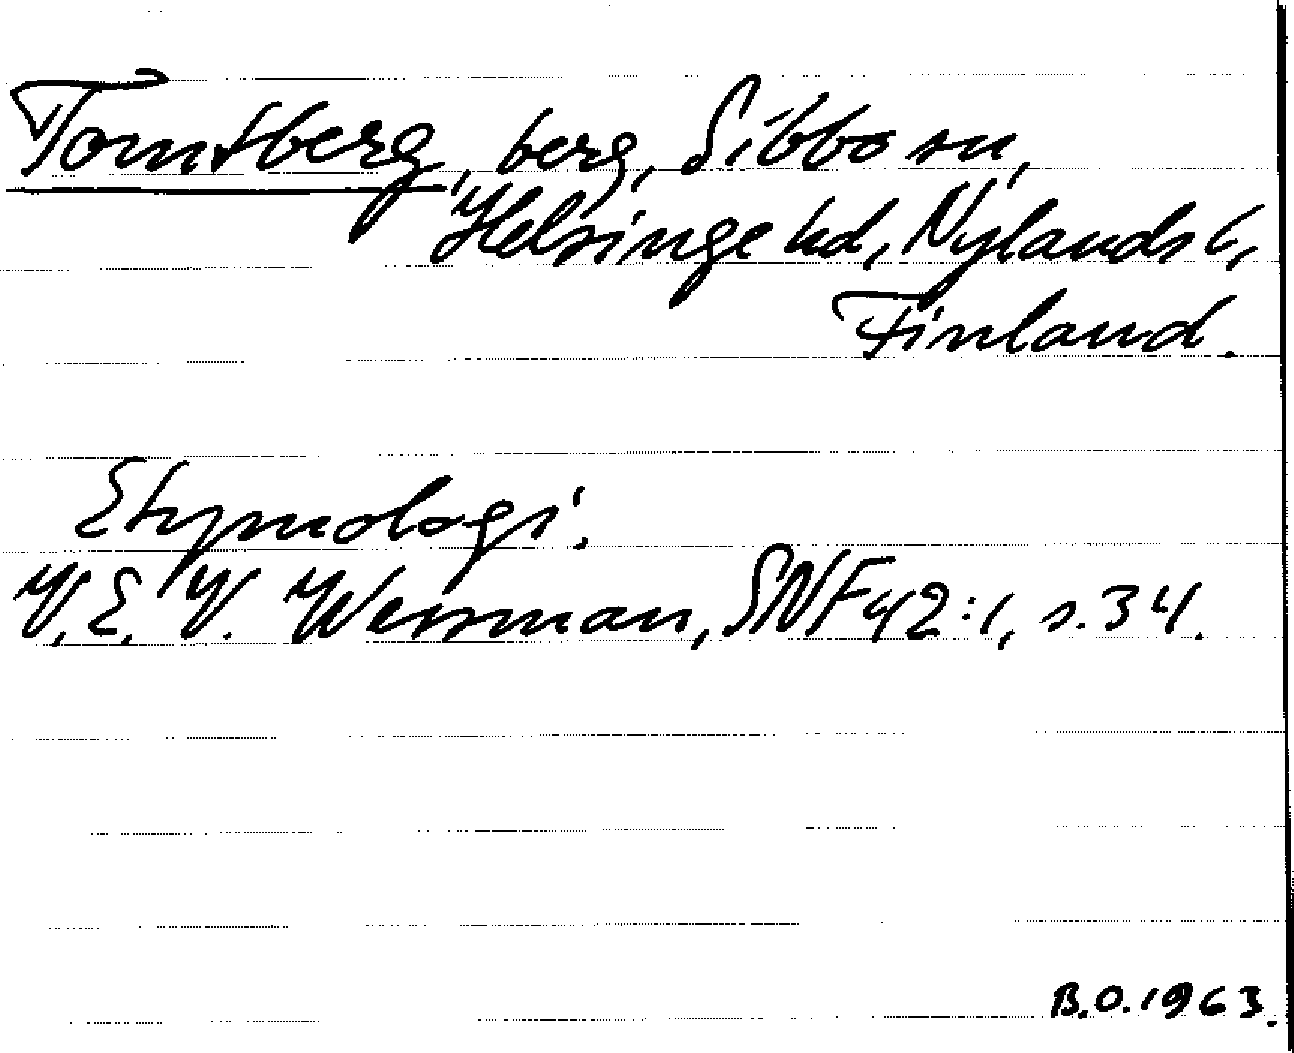 Tomtberg, berg, Sibbo sn,
Helsinge hd, Nylands l,
Finland.
Etymologi.
V. E. V. Wessman, SNF 42:1, s. 34.
B.O. 1963.